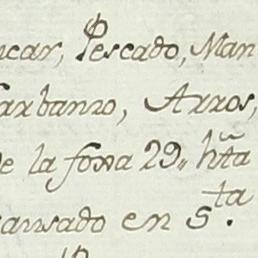 ucar, Pescado, Man
arbanzo, Arros,
de la foxa 29,, hta
causado en 5.ta